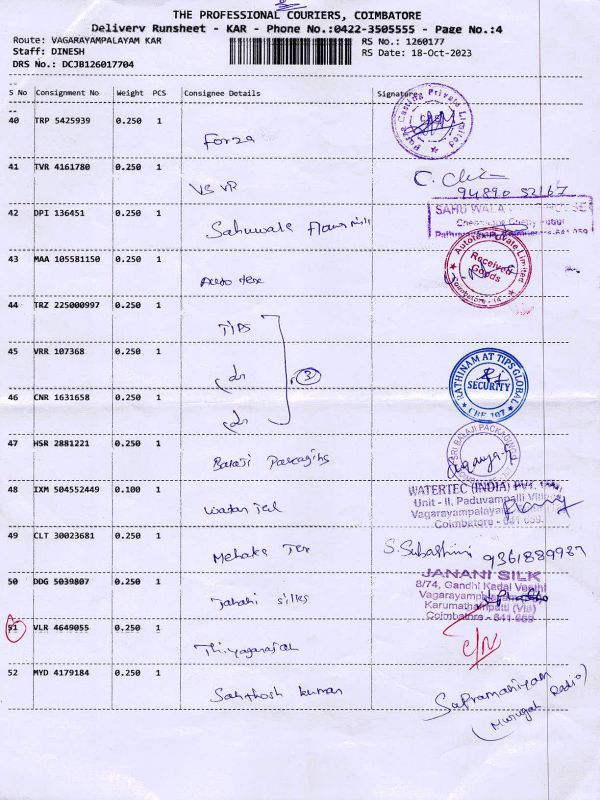 THE PROFESSIONAL COURIERS, COIMBATORE
Delivery Runsheet - KAR - Phone No.:0422-3505555 - Page No.:4
Route: VAGARAYAMPALAYAM KAR
RS No.: 1260177
Staff: DINESH
RS Date: 18-Oct-2023
DRS No.: DCJB126017704
S No Consignment No Weight PCS Consignee Details Signature
40 TRP 5425939 0.250 1
Forza
Casting Private Limited
41 TVR 4161780 0.250 1
VSVR
94890 52167
42 DPI 136451 0.250 1
Sahuwala Flour mill
SAHUWALA
43 MAA 105581150 0.250 1
Auto tex
Autotex Private Limited
Received
Goods
Coimbatore - 14
44 TRZ 225000997 0.250 1
TIPS
45 VRR 107368 0.250 1
3
RATHINAM AT TIPS GLOBAL
SECURITY
CBE 107
46 CNR 1631658 0.250 1
47 HSR 2881221 0.250 1
Balaji Packaging
SRI BALAJI PACKAGING
48 IXM 504552449 0.100 1
Water Tec
WATERTEC (INDIA) PVT.
Unit - II, Paduvampalli Village
Vagarayampalayam
Coimbatore - 641 659.
49 CLT 30023681 0.250 1
Mehala Tex
S. Subashini
50 DDG 5039807 0.250 1
Janani silks
JANANI SILK
8/74, Gandhi Kadai Veethi
Vagarayampalayam
Karumathampatti (Via)
Coimbatore - 641 659
51 VLR 4649055 0.250 1
Thiyagarajah
C/N
52 MYD 4179184 0.250 1
Santhosh kumar
Supramaniyan
(Murugah Radio)